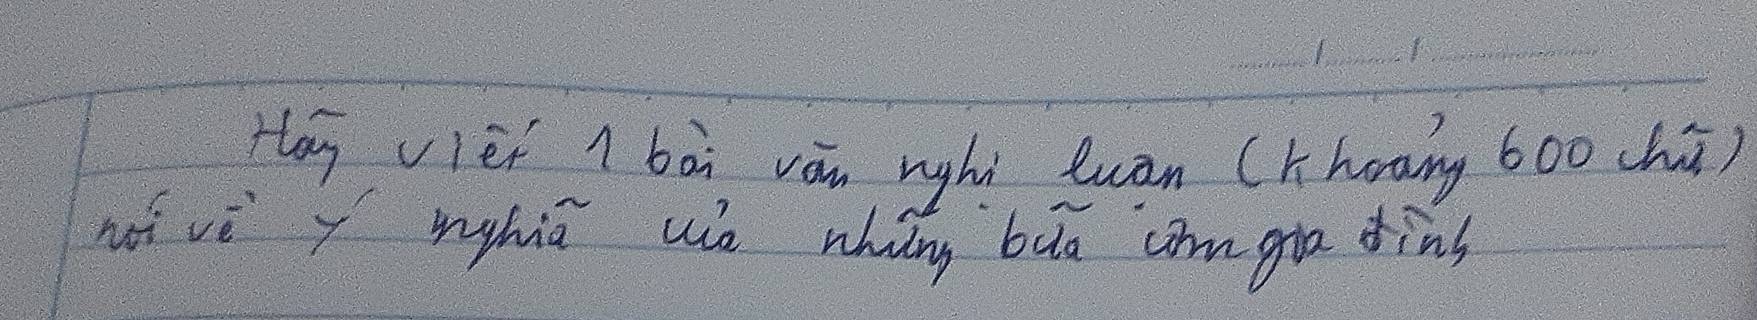 Hãy viết 1 bài văn nghị luận (khoảng 600 chữ)
nói về ý nghĩa của những bữa cơm gia đình